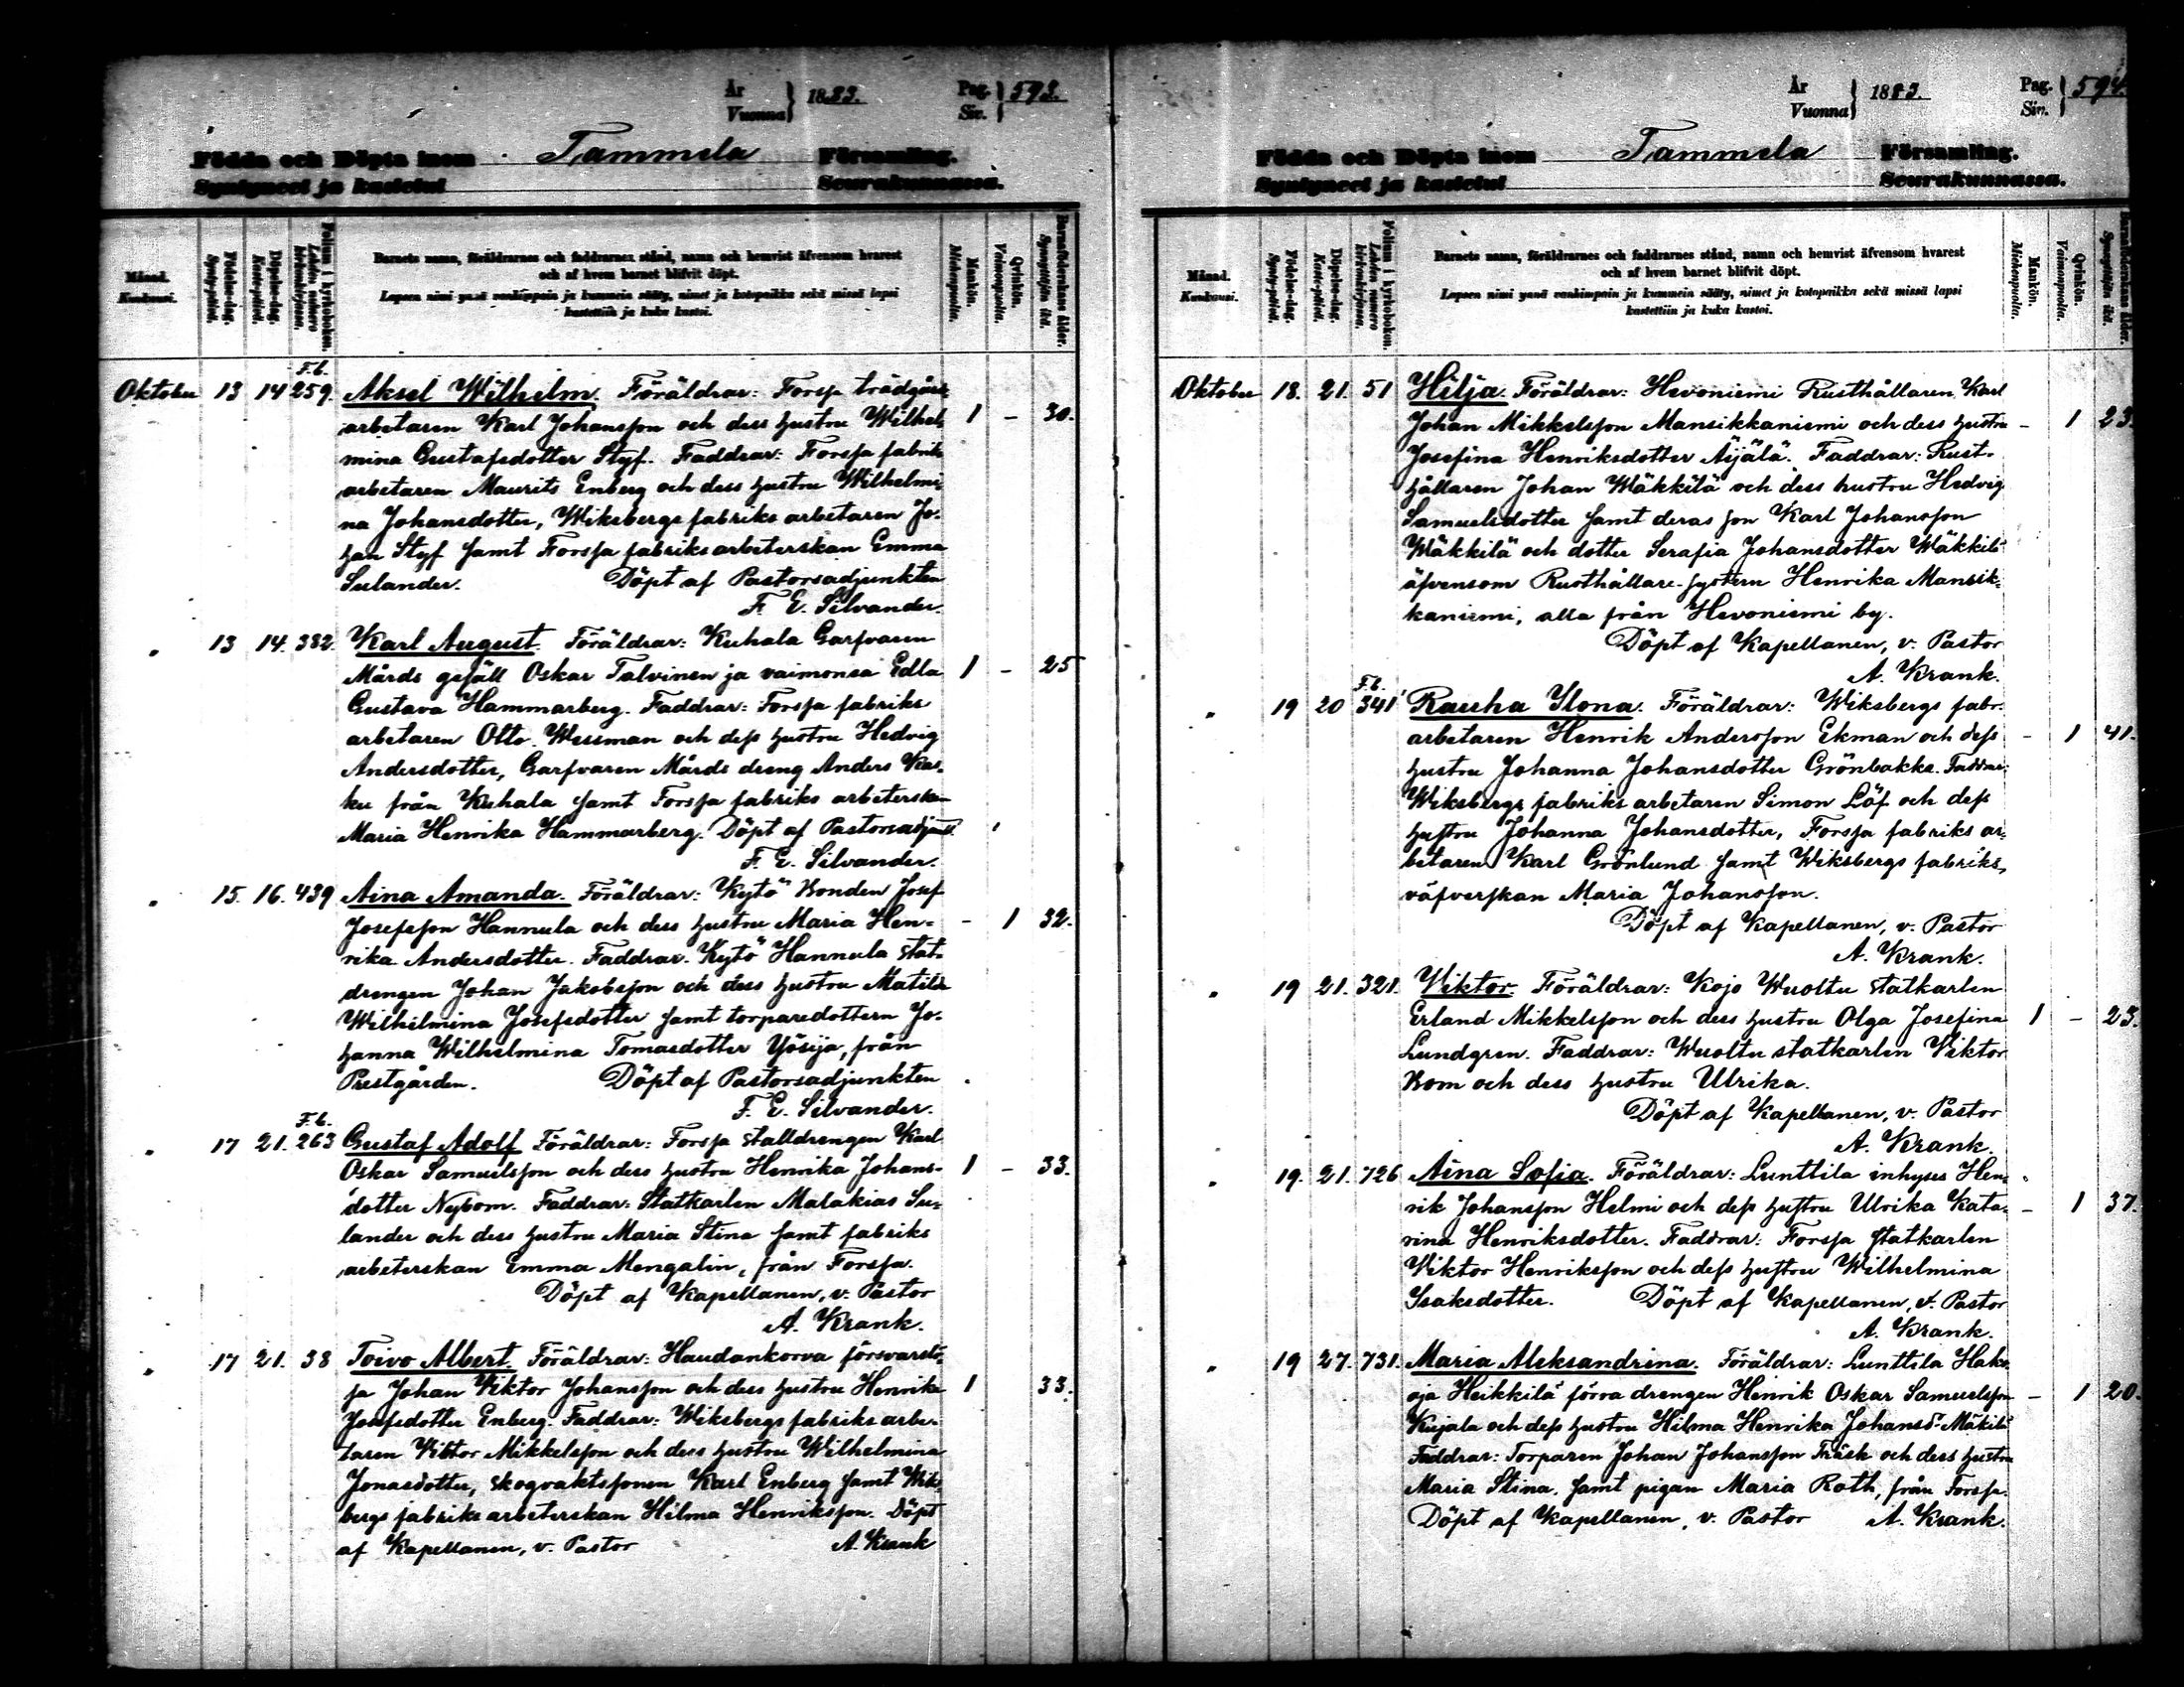 År
Vuonna } 1883. Pag.
Siv. } 593.
Födda och Döpta inom Tammela Församling.
Syntyneet ja kastetut Seurakunnassa.
Månad.
Kuukausi.
Födelse-dag.
Synty-päivä.
Döpelse-dag.
Kaste-päivä.
Folium i kyrkoboken.
Lehden numero kirkonkirjassa.
Barnets namn, föräldrarnes och faddrarnes stånd, namn och hemvist äfvensom hvarest
och af hvem barnet blifvit döpt.
Lapsen nimi ynnä vanhimpain ja kummein sääty, nimet ja kotopaikka sekä missä lapsi
kastettiin ja kuka kastoi.
Mankön.
Miehenpuolia.
Qvinkön.
Vaimonpuolia.
Barnaföderskans ålder.
Synnyttäjän ikä.
F.b.
Oktober 13 14 259. Aksel Wilhelm. Föräldrar: Forssa trädgårds
arbetaren Karl Johansson och dess hustru Wilhel- 1 – 30.
mina Gustafsdotter Styf. Faddrar: Forssa fabriks
arbetaren Maurits Enberg och dess hustru Wilhelmi-
na Johansdotter, Wiksbergs fabriks arbetaren Jo-
han Styf samt Forssa fabriksarbeterskan Emma
Sulander. Döpt af Pastorsadjunkten
F. E. Silvander.
" 13 14. 382. Karl August. Föräldrar: Kuhala Garfvaren
Mårds gesäll Oskar Talvinen ja vaimonsa Edla 1 – 25
Gustava Hammarberg. Faddrar: Forssa fabriks
arbetaren Otto Wessman och dess hustru Hedvig
Andersdotter, Garfvaren Mårds dreng Anders Kas-
ku från Kuhala samt Forssa fabriks arbeterskan
Maria Henrika Hammarberg. Döpt af Pastorsadjunkt.
F. E. Silvander.
" 15. 16. 439 Aina Amanda. Föräldrar: Kytö Bonden Josef
Josefsson Hannula och dess hustru Maria Hen- – 1 32.
rika Andersdotter. Faddrar: Kytö Hannula stat-
drengen Johan Jakobsson och dess hustru Matilda
Wilhelmina Josefsdotter samt torparedottern Jo-
hanna Wilhelmina Tomasdotter Yösija, från
Prestgården. Döpt af Pastorsadjunkten
F. E. Silvander.
F.b.
" 17 21. 263 Gustaf Adolf Föräldrar: Forssa stalldrengen Karl
Oskar Samuelsson och dess hustru Henrika Johans- 1 – 33.
dotter Nybom. Faddrar: Statkarlen Malakias Su-
lander och dess hustru Maria Stina samt fabriks
arbeterskan Emma Mengalin, från Forssa.
Döpt af Kapellanen, v. Pastor
A. Krank.
" 17 21. 38 Toivo Albert. Föräldrar: Haudankorva försvarslö-
sa Johan Viktor Johansson och dess hustru Henrika 1 33.
Josefsdotter Enberg. Faddrar: Wiksbergs fabriks arbe-
taren Viktor Mikkelsson och dess hustru Wilhelmina
Jonasdotter, skogvaktssonen Karl Enberg samt Wiks-
bergs fabriks arbeterskan Hilma Henriksson. Döpt
af Kapellanen, v. Pastor A. Krank
År
Vuonna } 1883. Pag.
Siv. } 594.
Födda och Döpta inom Tammela Församling.
Syntyneet ja kastetut Seurakunnassa.
Månad.
Kuukausi.
Födelse-dag.
Synty-päivä.
Döpelse-dag.
Kaste-päivä.
Folium i kyrkoboken.
Lehden numero kirkonkirjassa.
Barnets namn, föräldrarnes och faddrarnes stånd, namn och hemvist äfvensom hvarest
och af hvem barnet blifvit döpt.
Lapsen nimi ynnä vanhimpain ja kummein sääty, nimet ja kotopaikka sekä missä lapsi
kastettiin ja kuka kastoi.
Mankön.
Miehenpuolia.
Qvinkön.
Vaimonpuolia.
Barnaföderskans ålder.
Synnyttäjän ikä.
Oktober 18. 21. 51 Hilja. Föräldrar: Hevoniemi Rusthållaren Karl
Johan Mikkelsson Mansikkaniemi och dess hustru – 1 23.
Josefina Henriksdotter Äijälä. Faddrar: Rust-
hållaren Johan Wäkkilä och dess hustru Hedvig
Samuelsdotter samt deras son Karl Johansson
Wäkkilä och dotter Serafia Johansdotter Wäkkilä
äfvensom Rusthållare-systern Henrika Mansik-
kaniemi, alla från Hevoniemi by.
Döpt af Kapellanen, v. Pastor
A. Krank.
F.b.
" 19 20 341 Rauha Ilona. Föräldrar: Wiksbergs fabr.
arbetaren Henrik Andersson Ekman och dess – 1 41.
hustru Johanna Johansdotter Grönbakka. Faddrar:
Wiksbergs fabriks arbetaren Simon Löf och dess
hustru Johanna Johansdotter, Forssa fabriks ar-
betaren Karl Grönlund samt Wiksbergs fabriks,
väfverskan Maria Johansson.
Döpt af Kapellanen, v. Pastor
A. Krank.
" 19 21. 321. Viktor. Föräldrar: Kojo Wuoltu statkarlen
Erland Mikkelsson och dess hustru Olga Josefina 1 – 23.
Lundgren. Faddrar: Wuoltu statkarlen Viktor
Bom och dess hustru Ulrika.
Döpt af Kapellanen, v. Pastor
A. Krank.
" 19. 21. 726 Aina Sofia. Föräldrar: Lunttila inhyses Hen-
rik Johansson Helmi och dess hustru Ulrika Kata- – 1 37.
rina Henriksdotter. Faddrar: Forssa statkarlen
Viktor Henriksson och dess hustru Wilhelmina
Isaksdotter. Döpt af Kapellanen, v. Pastor
A. Krank.
" 19 27. 731. Maria Aleksandrina. Föräldrar: Lunttila Haks-
oja Heikkilä förra drengen Henrik Oskar Samuelsson – 1 20.
Kujala och dess hustru Hilma Henrika Johansd:r Mäkilä
Faddrar: Torparen Johan Johansson Träsk och dess hustru
Maria Stina, samt pigan Maria Roth, från Forssa.
Döpt af Kapellanen, v. Pastor A. Krank.